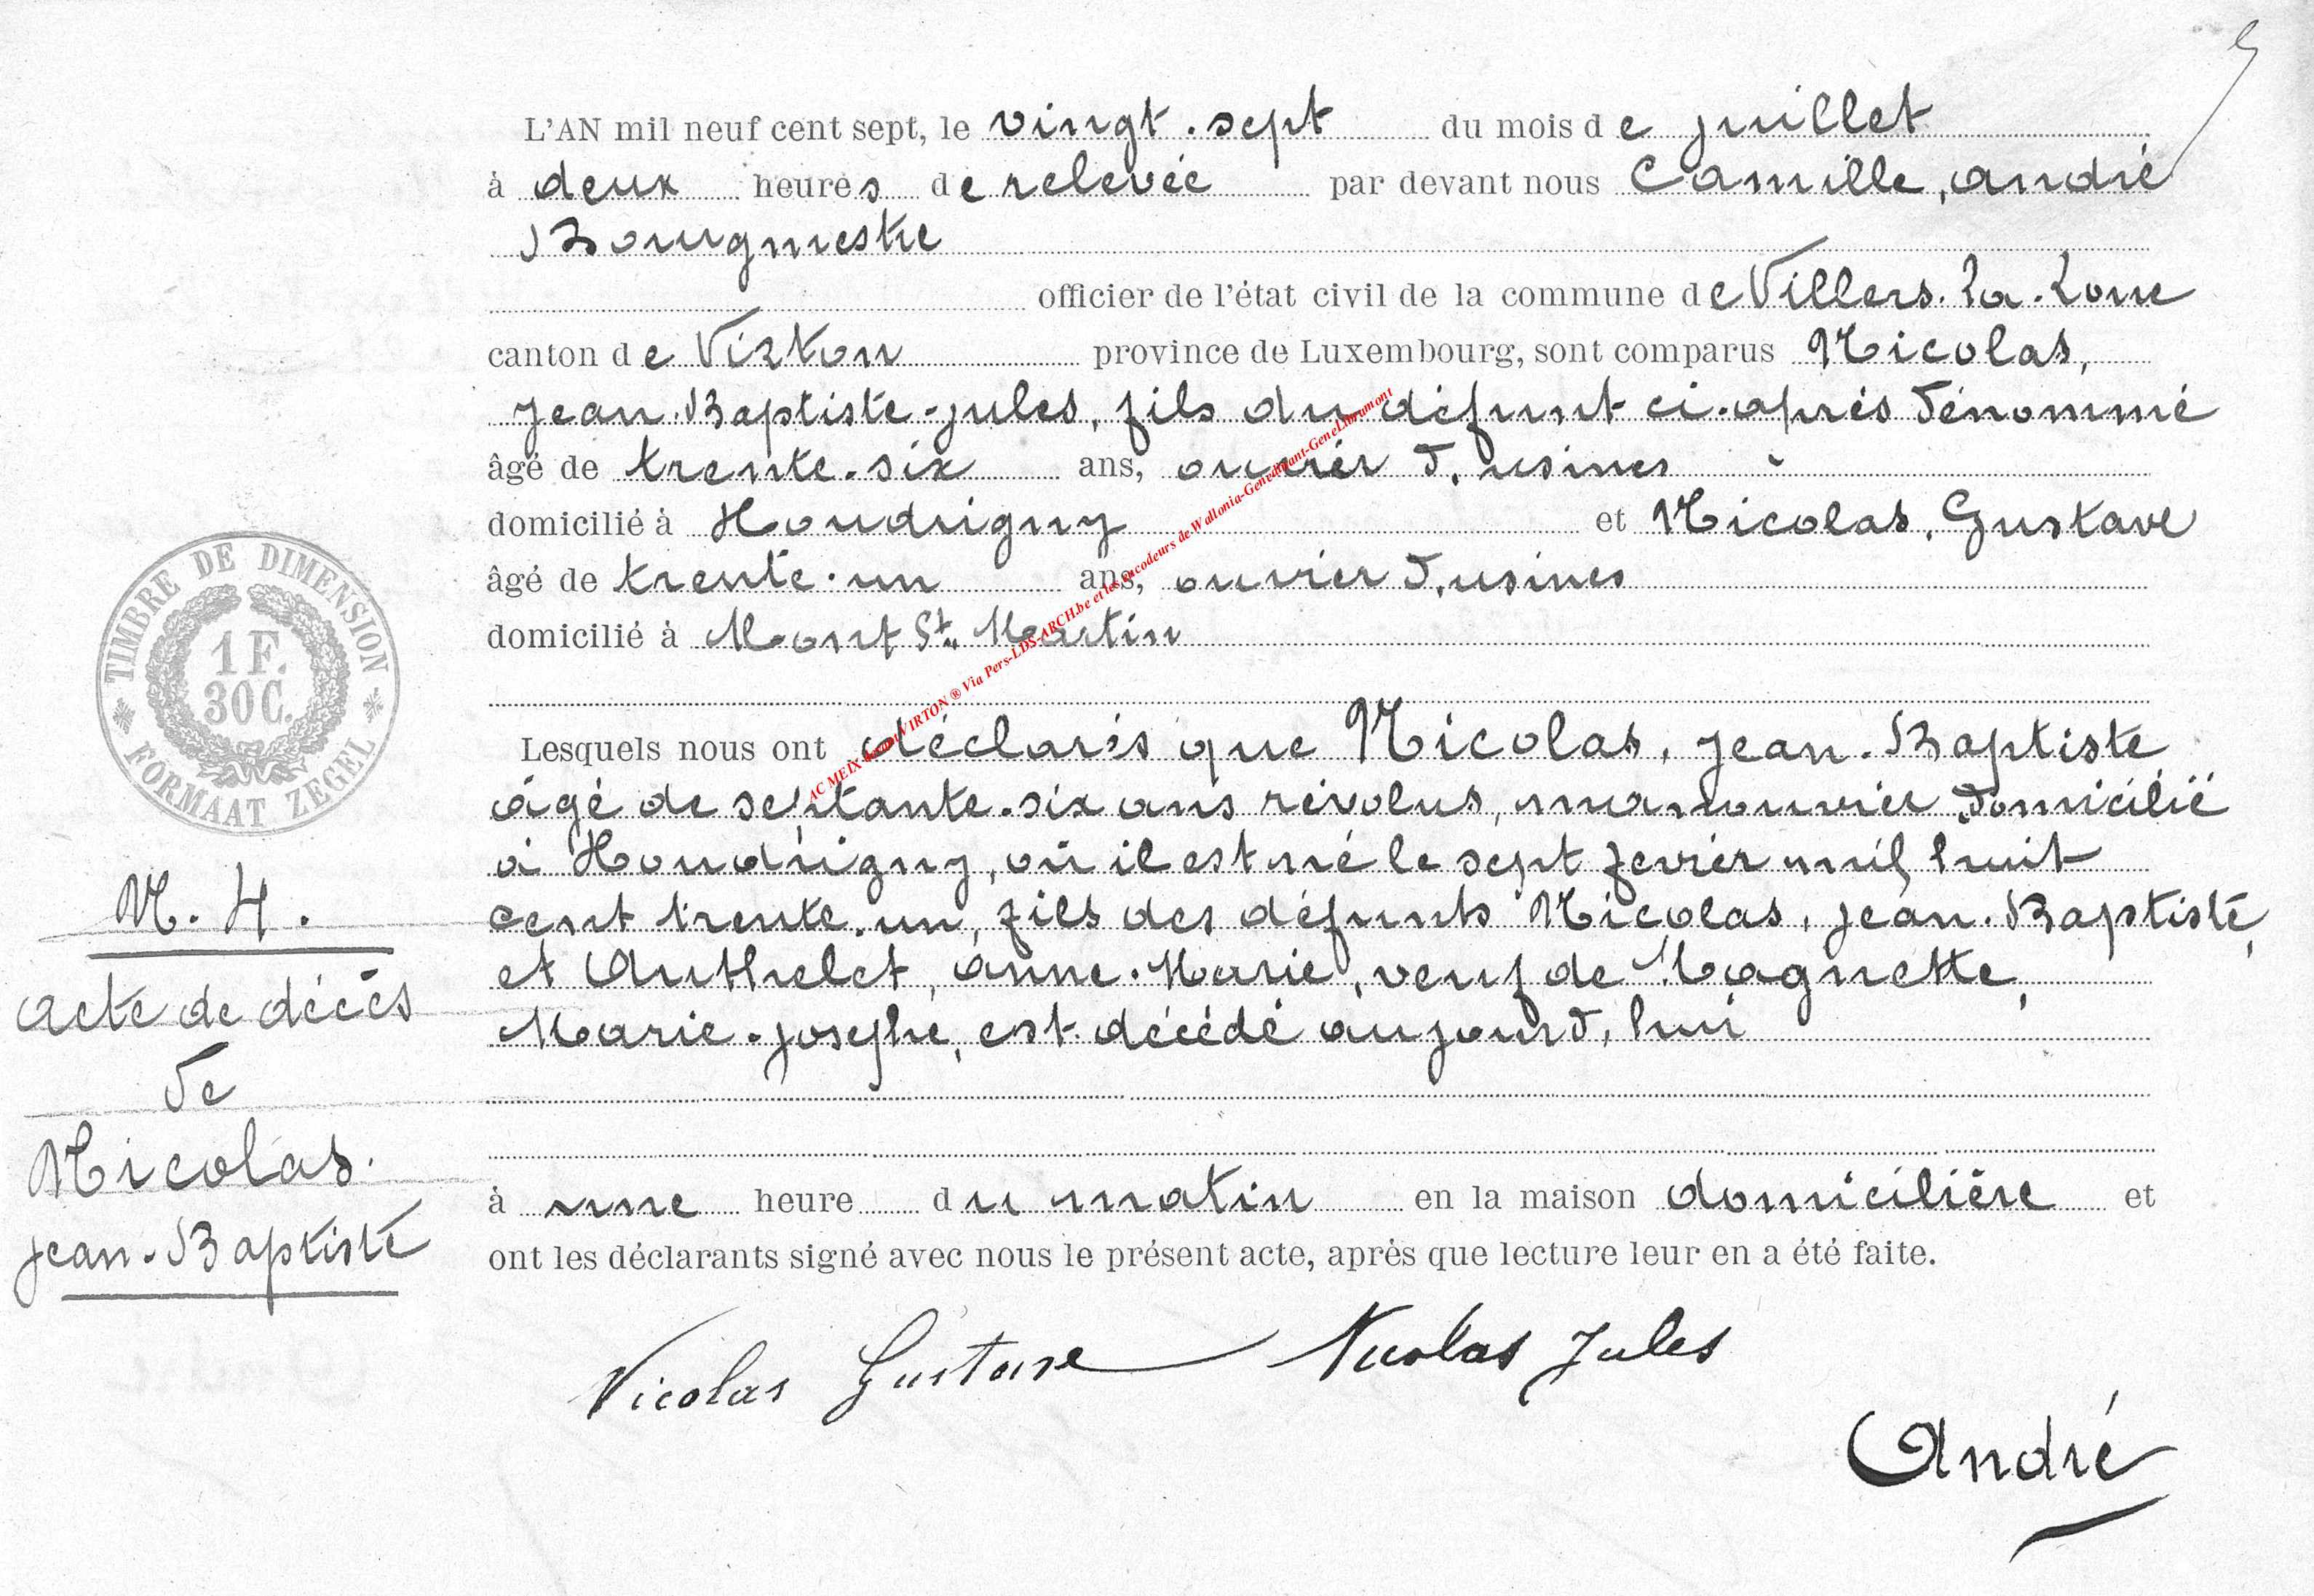 5
L'AN mil neuf cent sept, le vingt.sept du mois de juillet
à deux heures de relevée par devant nous Camille, andré
Bourgmestre
officier de l'état civil de la commune de Villers.la.Loue
canton de Virton province de Luxembourg, sont comparus Nicolas,
Jean.Baptiste-jules, fils du défunt ci.après dénommé
âgé de trente.six ans, ouvrier d'usines
domicilié à Houdrigny et Nicolas, Gustave
âgé de trente.un ans, ouvrier d'usines
domicilié à Mont St. Martin
Lesquels nous ont déclarés que Nicolas, jean.Baptiste
âgé de septante.six ans révolus, manouvrier domicilié
à Houdrigny, où il est né le sept fevrier mil huit
cent trente.un, fils des défunts Nicolas, jean.Baptiste,
et Authelet, anne.Marie, veuf de Magnette,
Marie.josephe, est décédé aujourd'hui
à une heure du matin en la maison domicilière et
ont les déclarants signé avec nous le présent acte, après que lecture leur en a été faite.
Nicolas Gustave Nicolas Jules
André
TIMBRE DE DIMENSION
1 F.
30 C.
FORMAAT ZEGEL
N. 4.
acte de décès
de
Nicolas.
jean.Baptiste
AC MEIX devant VIRTON ® Via Pers-LDS-ARCH.be et les encodeurs de Wallonia-Genedinant-GeneLibramont